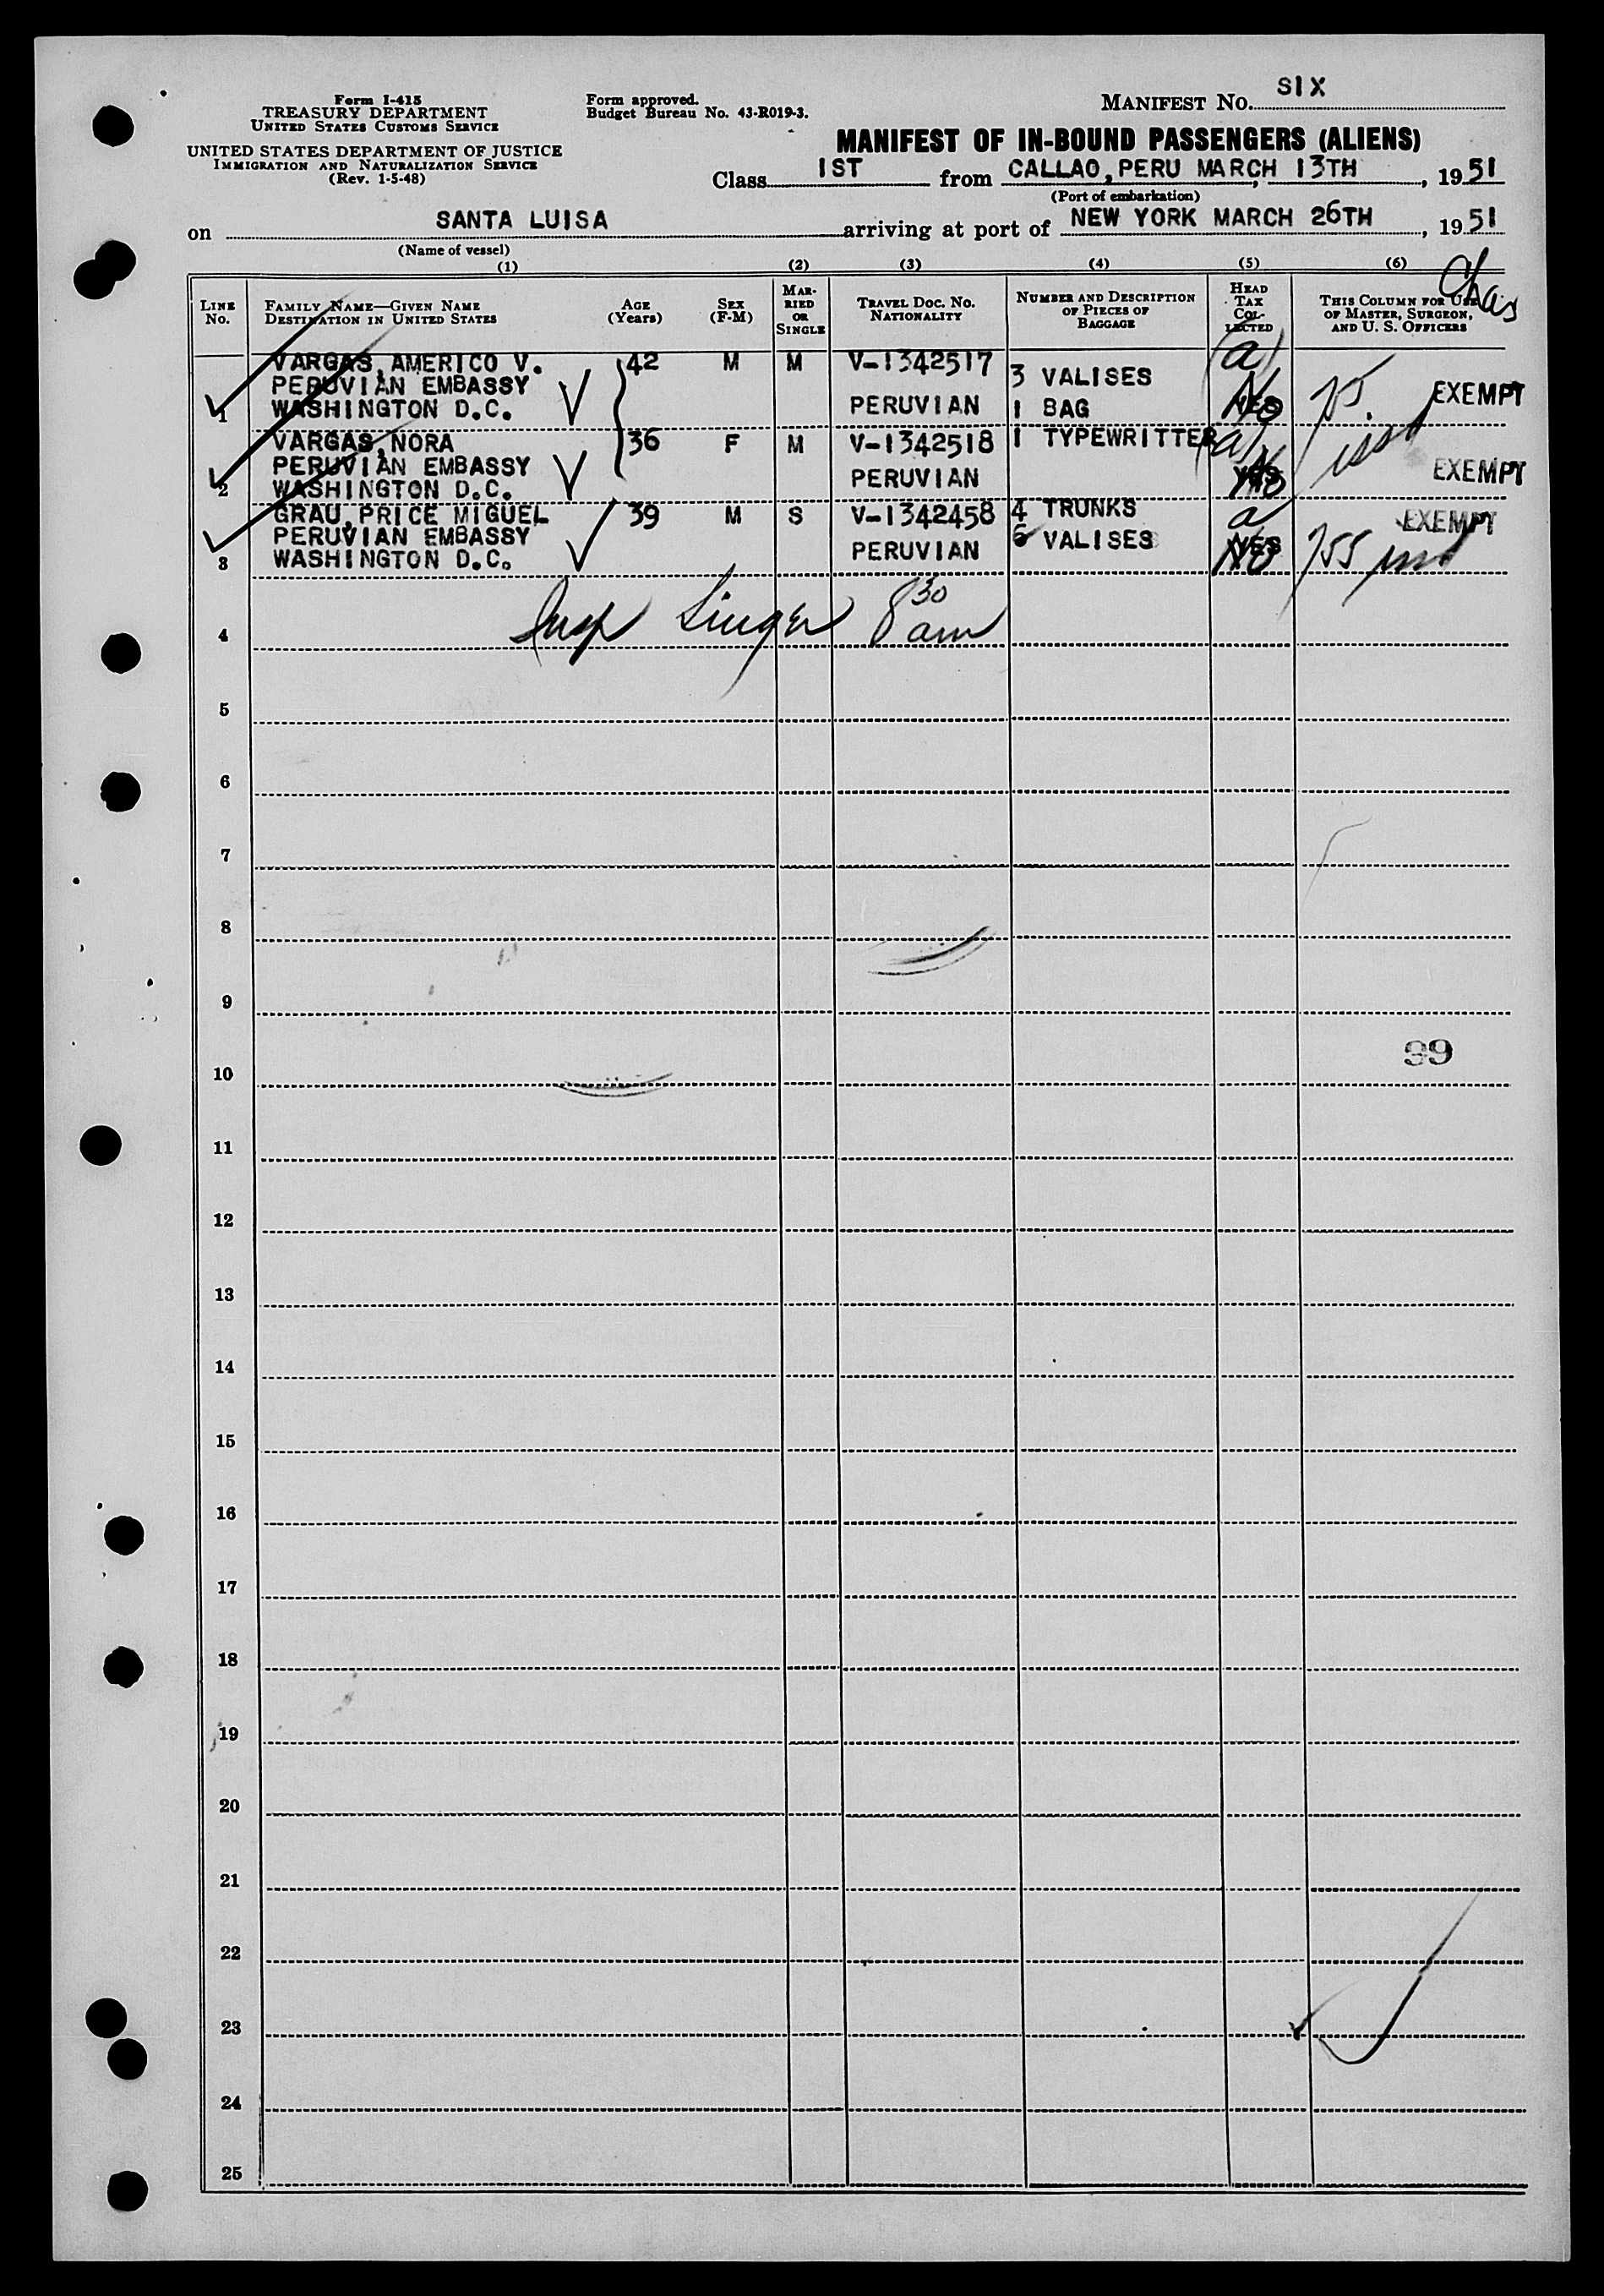 Form I-415
TREASURY DEPARTMENT
UNITED STATES CUSTOMS SERVICE
UNITED STATES DEPARTMENT OF JUSTICE
IMMIGRATION AND NATURALIZATION SERVICE
(Rev. 1-5-48)
Form approved.
Budget Bureau No. 43-R019-3.
MANIFEST NO. SIX
MANIFEST OF IN-BOUND PASSENGERS (ALIENS)
Class 1ST from CALLAO, PERU MARCH 13TH, 1951
(Port of embarkation)
on SANTA LUISA arriving at port of NEW YORK MARCH 26TH, 1951
(Name of vessel)
(1) (2) (3) (4) (5) (6)
LINE No.
FAMILY NAME—GIVEN NAME
DESTINATION IN UNITED STATES
AGE (Years)
SEX (F-M)
MARRIED OR SINGLE
TRAVEL DOC. NO.
NATIONALITY
NUMBER AND DESCRIPTION OF PIECES OF BAGGAGE
HEAD TAX COLLECTED
THIS COLUMN FOR USE OF MASTER, SURGEON, AND U. S. OFFICERS
Chas
VARGAS, AMERICO V. 42 M M V-1342517 (a)
PERUVIAN EMBASSY 3 VALISES
1 WASHINGTON D.C. PERUVIAN 1 BAG No EXEMPT
VARGAS, NORA 36 F M V-1342518 1 TYPEWRITTER (a)
PERUVIAN EMBASSY PERUVIAN YES EXEMPT
2 WASHINGTON D.C.
GRAU, PRICE MIGUEL 39 M S V-1342458 4 TRUNKS a EXEMPT
PERUVIAN EMBASSY PERUVIAN 6 VALISES YES No
3 WASHINGTON D.C.
Insp Singer 8 30 am
4
5
6
7
8
9
99
10
11
12
13
14
15
16
17
18
19
20
21
22
23
24
25